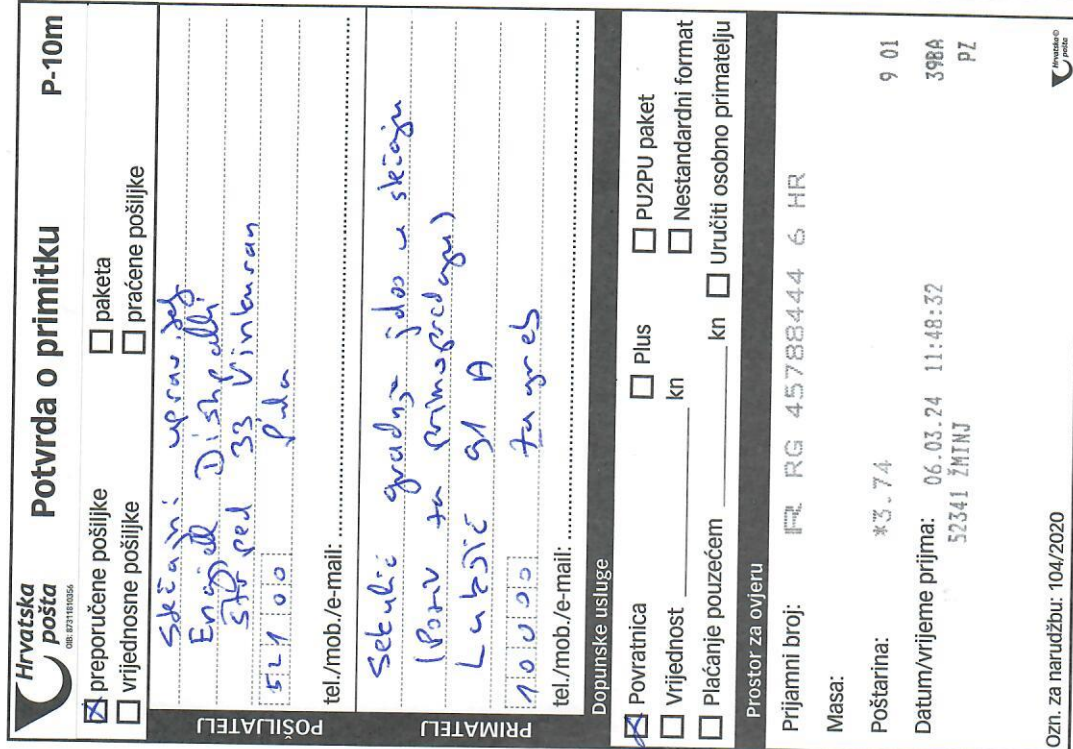 Hrvatska pošta
OIB: 87311810356
Potvrda o primitku
P-10m
preporučene pošiljke
paketa
vrijednosne pošiljke
praćene pošiljke
POŠILJATELJ
Stečajni upravitelj
Engjell Dishpalli
33 Vinkuran
52100 Pula
tel./mob./e-mail:
PRIMATELJ
Sekulić gradnja jdoo u stečaju
(Poziv za primopredaju)
91 A
10000 Zagreb
tel./mob./e-mail:
Dopunske usluge
Povratnica
Plus
PU2PU paket
Vrijednost kn
Nestandardni format
Plaćanje pouzećem kn
Uručiti osobno primatelju
Prostor za ovjeru
Prijamni broj: R RG 45788444 6 HR
Masa:
Poštarina: *3.74
9 01
Datum/vrijeme prijma: 06.03.24 11:48:32
39BA
52341 ŽMINJ
PZ
Ozn. za narudžbu: 104/2020
Hrvatska pošta